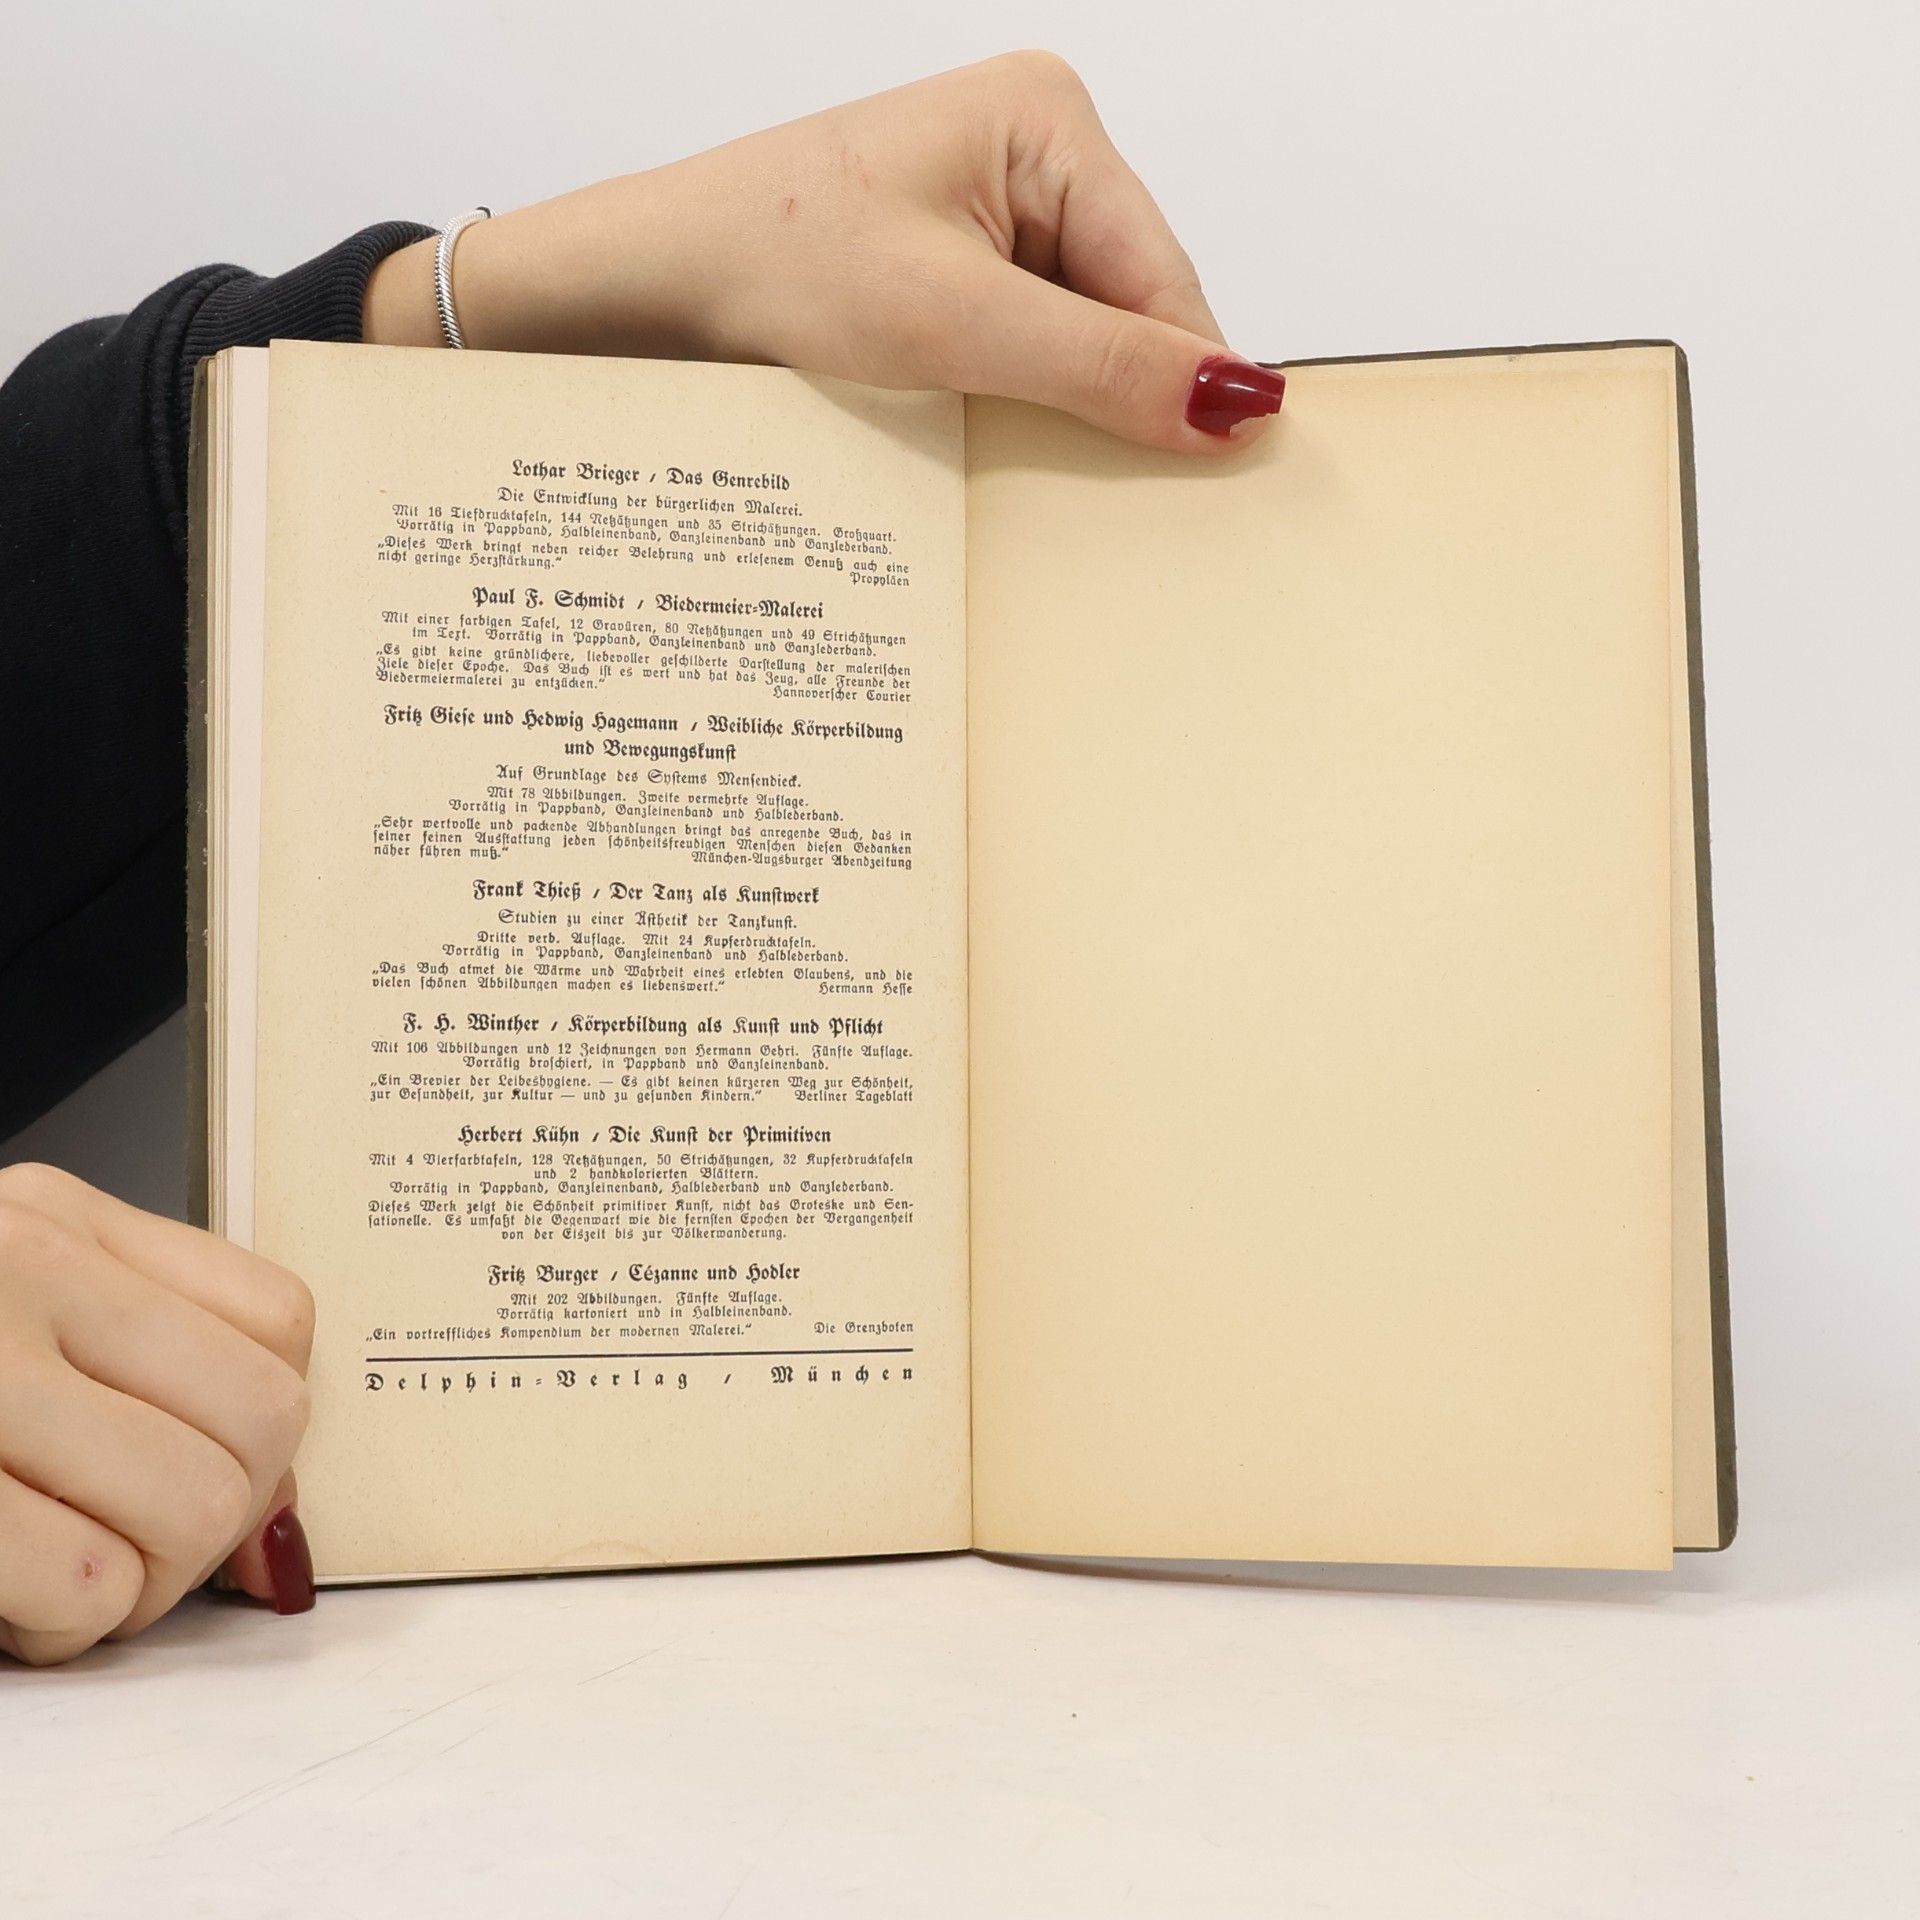 Lothar Brieger / Das Genrebild
Die Entwicklung der bürgerlichen Malerei.
Mit 16 Tiefdrucktafeln, 144 Netzätzungen und 35 Strichätzungen. Großquart.
Vorrätig in Pappband, Halbleinenband, Ganzleinenband und Ganzlederband.
„Dieses Werk bringt neben reicher Belehrung und erlesenem Genuß auch eine
nicht geringe Herzstärkung.“
Propyläen
Paul F. Schmidt / Biedermeier-Malerei
Mit einer farbigen Tafel, 12 Gravüren, 80 Netzätzungen und 49 Strichätzungen
im Text. Vorrätig in Pappband, Ganzleinenband und Ganzlederband.
„Es gibt keine gründlichere, liebevoller geschilderte Darstellung der malerischen
Ziele dieser Epoche. Das Buch ist es wert und hat das Zeug, alle Freunde der
Biedermeiermalerei zu entzücken.“
Hannoverscher Courier
Fritz Giese und Hedwig Hagemann / Weibliche Körperbildung
und Bewegungskunst
Auf Grundlage des Systems Mensendieck.
Mit 78 Abbildungen. Zweite vermehrte Auflage.
Vorrätig in Pappband, Ganzleinenband und Halblederband.
„Sehr wertvolle und packende Abhandlungen bringt das anregende Buch, das in
seiner feinen Ausstattung jeden schönheitsfreudigen Menschen diesen Gedanken
näher führen muß.“ München-Augsburger Abendzeitung
Frank Thieß / Der Tanz als Kunstwerk
Studien zu einer Ästhetik der Tanzkunst.
Dritte verb. Auflage. Mit 24 Kupferdrucktafeln.
Vorrätig in Pappband, Ganzleinenband und Halblederband.
„Das Buch atmet die Wärme und Wahrheit eines erlebten Glaubens, und die
vielen schönen Abbildungen machen es liebenswert.“ Hermann Hesse
F. H. Winther / Körperbildung als Kunst und Pflicht
Mit 106 Abbildungen und 12 Zeichnungen von Hermann Gehri. Fünfte Auflage.
Vorrätig broschiert, in Pappband und Ganzleinenband.
„Ein Brevier der Leibeshygiene. — Es gibt keinen kürzeren Weg zur Schönheit,
zur Gesundheit, zur Kultur — und zu gesunden Kindern.“ Berliner Tageblatt
Herbert Kühn / Die Kunst der Primitiven
Mit 4 Vierfarbtafeln, 128 Netzätzungen, 50 Strichätzungen, 32 Kupferdrucktafeln
und 2 handkolorierten Blättern.
Vorrätig in Pappband, Ganzleinenband, Halblederband und Ganzlederband.
Dieses Werk zeigt die Schönheit primitiver Kunst, nicht das Groteske und Sen-
sationelle. Es umfaßt die Gegenwart wie die fernsten Epochen der Vergangenheit
von der Eiszeit bis zur Völkerwanderung.
Fritz Burger / Cézanne und Hodler
Mit 202 Abbildungen. Fünfte Auflage.
Vorrätig kartoniert und in Halbleinenband.
„Ein vortreffliches Kompendium der modernen Malerei.“ Die Grenzboten
Delphin-Verlag / München